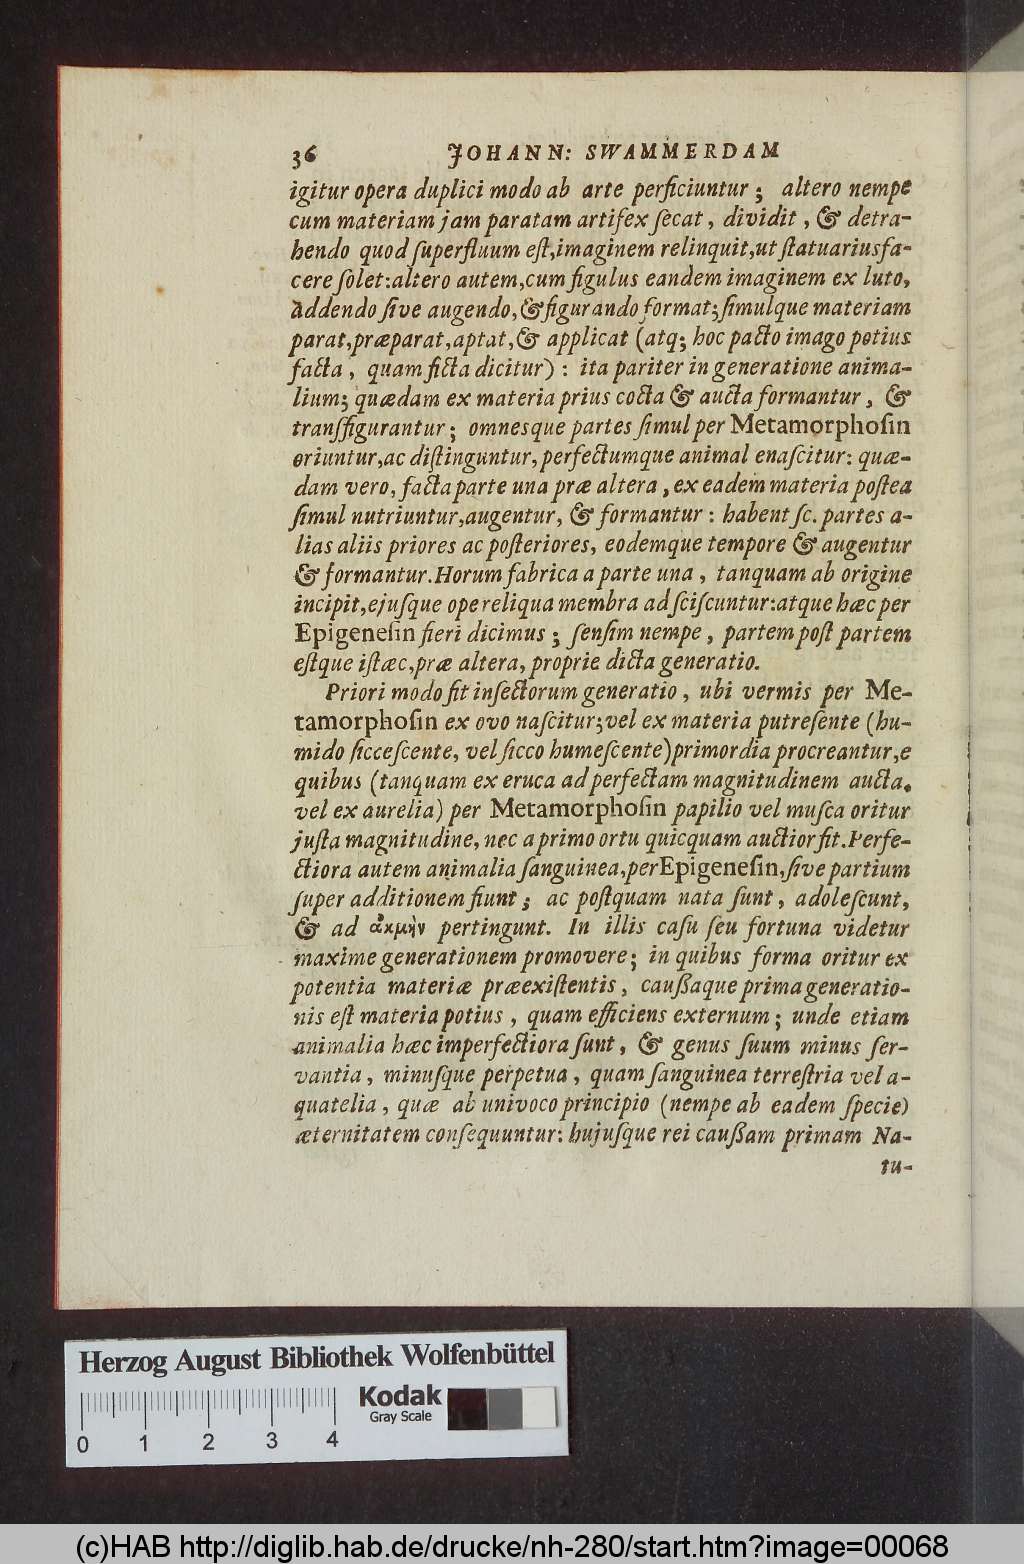 36 JOHANN: SWAMMERDAM
igitur opera duplici modo ab arte perficiuntur; altero nempe
cum materiam jam paratam artifex ſecat, dividit, & detra-
hendo quod ſuperfluum eſt, imaginem relinquit, ut ſtatuarius fa-
cere ſolet: altero autem, cum figulus eandem imaginem ex luto,
addendo ſive augendo, & figurando format; ſimulque materiam
parat, præparat, aptat, & applicat (atq; hoc pacto imago potius
facta, quam ficta dicitur): ita pariter in generatione anima-
lium; quædam ex materia prius cocta & aucta formantur, &
tranſfigurantur; omnesque partes ſimul per Metamorphoſin
oriuntur, ac diſtinguntur, perfectumque animal enaſcitur: quæ-
dam vero, facta parte una præ altera, ex eadem materia poſtea
ſimul nutriuntur, augentur, & formantur: habent ſc. partes a-
lias aliis priores ac poſteriores, eodemque tempore & augentur
& formantur. Horum fabrica a parte una, tanquam ab origine
incipit, ejuſque ope reliqua membra adſciſcuntur: atque hæc per
Epigeneſin fieri dicimus; ſenſim nempe, partem poſt partem
eſtque iſtæc, præ altera, proprie dicta generatio.
Priori modo fit inſectorum generatio, ubi vermis per Me-
tamorphoſin ex ovo naſcitur; vel ex materia putreſente (hu-
mido ſicceſcente, vel ſicco humeſcente) primordia procreantur, e
quibus (tanquam ex eruca ad perfectam magnitudinem aucta,
vel ex aurelia) per Metamorphoſin papilio vel muſca oritur
juſta magnitudine, nec a primo ortu quicquam auctior fit. Perfe-
ctiora autem animalia ſanguinea, per Epigeneſin, ſive partium
ſuper additionem fiunt; ac poſtquam nata ſunt, adoleſcunt,
& ad ἀκμὴν pertingunt. In illis caſu ſeu fortuna videtur
maxime generationem promovere; in quibus forma oritur ex
potentia materiæ præexiſtentis, caußaque prima generatio-
nis eſt materia potius, quam efficiens externum; unde etiam
animalia hæc imperfectiora ſunt, & genus ſuum minus ſer-
vantia, minuſque perpetua, quam ſanguinea terreſtria vel a-
quatelia, quæ ab univoco principio (nempe ab eadem ſpecie)
æternitatem conſequuntur: hujuſque rei caußam primam Na-
tu-
Herzog August Bibliothek Wolfenbüttel
Kodak
Gray Scale
0 1 2 3 4
(c)HAB http://diglib.hab.de/drucke/nh-280/start.htm?image=00068